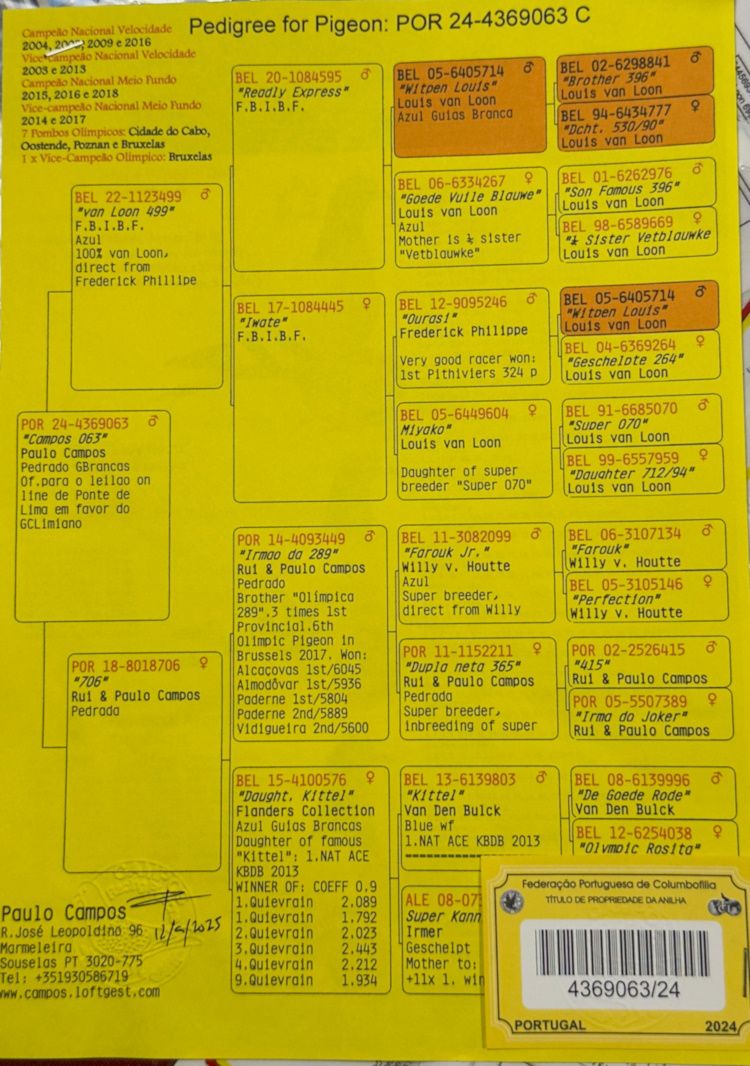 Pedigree for Pigeon: POR 24-4369063 C
Campeão Nacional Velocidade
2004, 2009 e 2016
Vice-campeão Nacional Velocidade
2003 e 2013
Campeão Nacional Meio Fundo
2015, 2016 e 2018
Vice-campeão Nacional Meio Fundo
2014 e 2017
7 Pombos Olímpicos: Cidade do Cabo,
Oostende, Poznan e Bruxelas
1 x Vice-Campeão Olímpico: Bruxelas
POR 24-4369063 ♂
"Campos 063"
Paulo Campos
Pedrado GBrancas
Of.para o leilao on
line de Ponte de
Lima em favor do
GCLimiano
BEL 22-1123499 ♂
"van Loon 499"
F.B.I.B.F.
Azul
100% van Loon,
direct from
Frederick Phillipe
POR 18-8018706 ♀
"706"
Rui & Paulo Campos
Pedrada
BEL 20-1084595 ♂
"Readly Express"
F.B.I.B.F.
BEL 17-1084445 ♀
"Iwate"
F.B.I.B.F.
POR 14-4093449 ♂
"Irmao da 289"
Rui & Paulo Campos
Pedrado
Brother "Olímpica
289".3 times 1st
Provincial.6th
Olimpic Pigeon in
Brussels 2017. Won:
Alcaçovas 1st/6045
Almodôvar 1st/5936
Paderne 1st/5804
Paderne 2nd/5889
Vidigueira 2nd/5600
BEL 15-4100576 ♀
"Daught. Kittel"
Flanders Collection
Azul Guias Brancas
Daughter of famous
"Kittel": 1.NAT ACE
KBDB 2013
WINNER OF: COEFF 0.9
1.Quievrain 2.089
1.Quievrain 1.792
2.Quievrain 2.023
3.Quievrain 2.443
4.Quievrain 2.212
9.Quievrain 1.934
BEL 05-6405714 ♂
"Witpen Louis"
Louis van Loon
Azul Guias Branca
BEL 06-6334267 ♀
"Goede Vuile Blauwe"
Louis van Loon
Azul
Mother is ½ sister
"Vetblauwke"
BEL 12-9095246 ♂
"Ourasi"
Frederick Philippe
Very good racer won:
1st Pithiviers 324 p
BEL 05-6449604 ♀
Miyako"
Louis van Loon
Daughter of super
breeder "Super 070"
BEL 11-3082099 ♂
"Farouk Jr."
Willy v. Houtte
Azul
Super breeder,
direct from Willy
POR 11-1152211 ♀
"Dupla neta 365"
Rui & Paulo Campos
Pedrada
Super breeder,
inbreeding of super
BEL 13-6139803 ♂
"Kittel"
Van Den Bulck
Blue wf
1.NAT ACE KBDB 2013
--------------------
ALE 08-073
Super Kann
Irmer
Geschelpt
Mother to:
+11x 1. win
BEL 02-6298841 ♂
"Brother 396"
Louis van Loon
BEL 94-6434777 ♀
"Dcht. 530/90"
Louis van Loon
BEL 01-6262976 ♂
"Son Famous 396"
Louis van Loon
BEL 98-6589669 ♀
"½ Sister Vetblauwke
Louis van Loon
BEL 05-6405714 ♂
"Witpen Louis"
Louis van Loon
BEL 04-6369264 ♀
"Geschelpte 264"
Louis van Loon
BEL 91-6685070 ♂
"Super 070"
Louis van Loon
BEL 99-6557959 ♀
"Daughter 712/94"
Louis van Loon
BEL 06-3107134 ♂
"Farouk"
Willy v. Houtte
BEL 05-3105146 ♀
"Perfection"
Willy v. Houtte
POR 02-2526415 ♂
"415"
Rui & Paulo Campos
POR 05-5507389 ♀
"Irma do Joker"
Rui & Paulo Campos
BEL 08-6139996 ♂
"De Goede Rode"
Van Den Bulck
BEL 12-6254038 ♀
"Olympic Rosita"
Paulo Campos
R.José Leopoldino 96
Marmeleira
Souselas PT 3020-775
Tel: +351930586719
www.campos.loftgest.com
Federação Portuguesa de Columbofilia
TÍTULO DE PROPRIEDADE DA ANILHA
4369063/24
PORTUGAL 2024